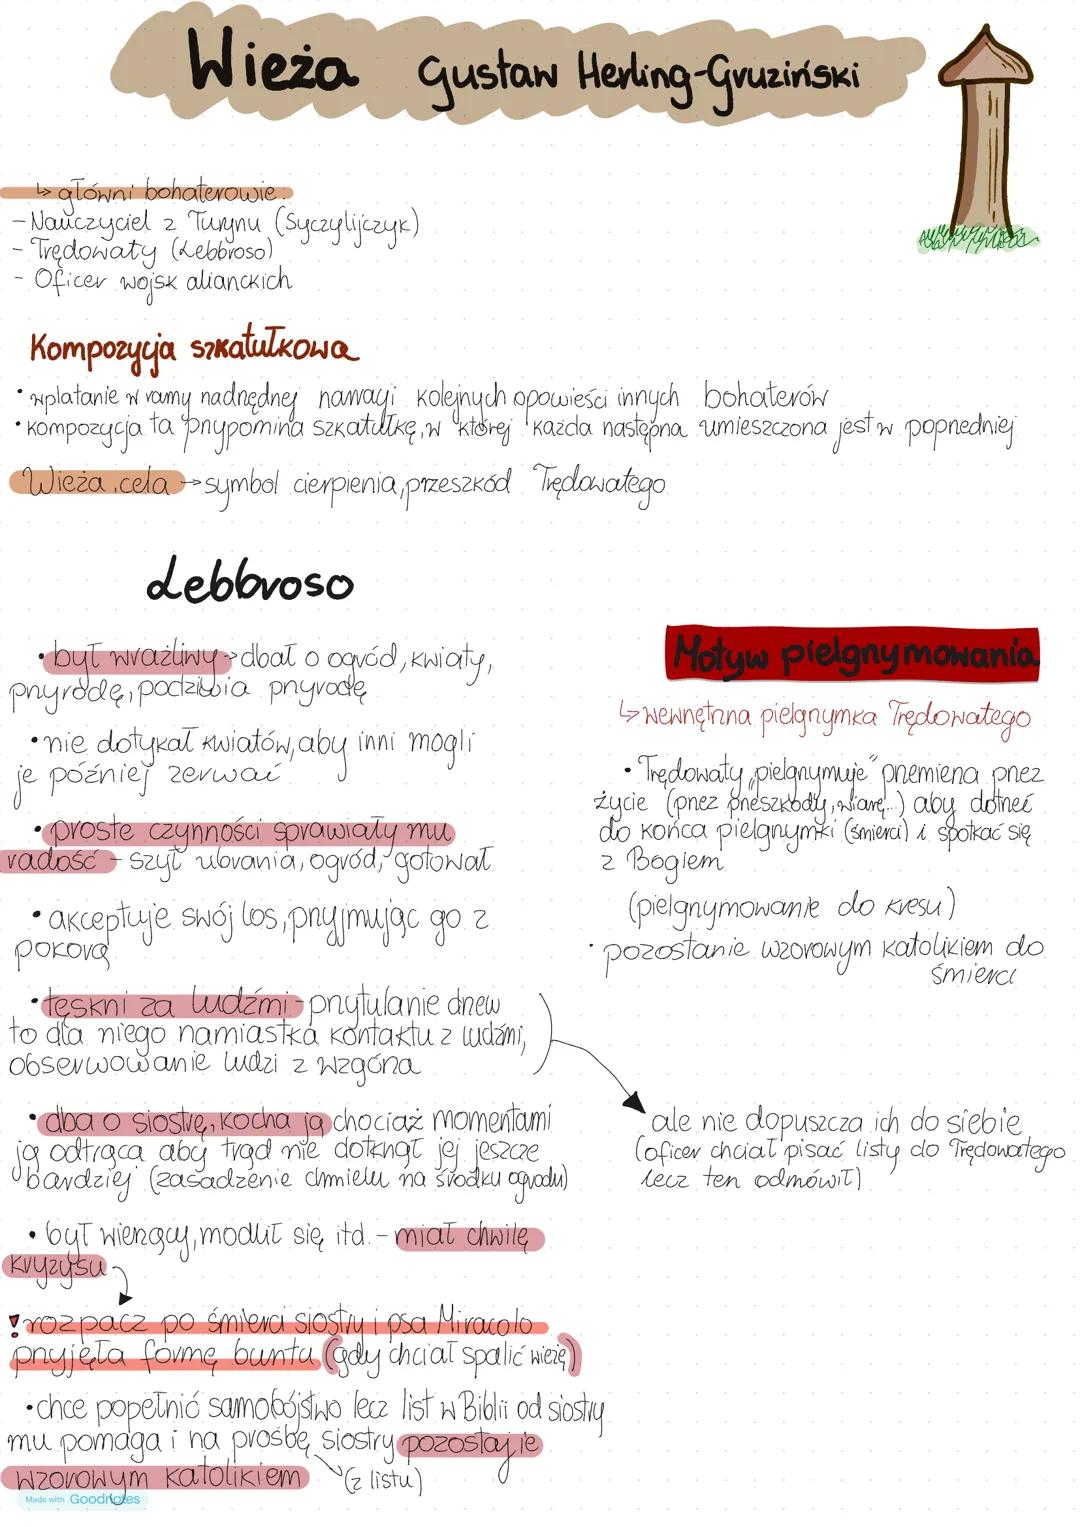 Wieża Gustaw Herling-Gruziński
↳ główni bohaterowie:
- Nauczyciel z Turynu (Syczylijczyk)
- Trędowaty (Lebbroso)
- Oficer wojsk alianckich
Kompozycja szkatułkowa
• wplatanie w ramy nadrzędnej narracji kolejnych opowieści innych bohaterów
• kompozycja ta przypomina szkatułkę, w której każda następna umieszczona jest w poprzedniej
Wieża, cela → symbol cierpienia, przeszkód Trędowatego
Lebbroso
• był wrażliwy → dbał o ogród, kwiaty,
przyrodę, podziwia przyrodę
• nie dotykał kwiatów, aby inni mogli
je później zerwać
• proste czynności sprawiały mu
radość - szył ubrania, ogród, gotował
• akceptuje swój los, przyjmując go z
pokorą
• tęskni za ludźmi - przytulanie drzew
to dla niego namiastka kontaktu z ludźmi,
obserwowanie ludzi z wzgórza
• dba o siostrę, kocha ją chociaż momentami
ją odtrąca aby trąd nie dotknął jej jeszcze
bardziej (zasadzenie chmielu na środku ogrodu)
• był wierzący, modlił się itd. - miał chwilę
kryzysu
! rozpacz po śmierci siostry i psa Miracolo
przyjęła formę buntu (gdy chciał spalić wieżę)
• chce popełnić samobójstwo lecz list w Biblii od siostry
mu pomaga i na prośbę siostry pozostaj ie
wzorowym katolikiem (z listu)
Motyw pielgrzymowania
↳ wewnętrzna pielgrzymka Trędowatego
• Trędowaty „pielgrzymuje" przemierza przez
życie (przez przeszkody, wiarę...) aby dotrzeć
do końca pielgrzymki (śmierci) i spotkać się
z Bogiem
(pielgrzymowanie do kresu)
• pozostanie wzorowym katolikiem do
śmierci
ale nie dopuszcza ich do siebie
(oficer chciał pisać listy do Trędowatego
lecz ten odmówił)
Made with Goodnotes